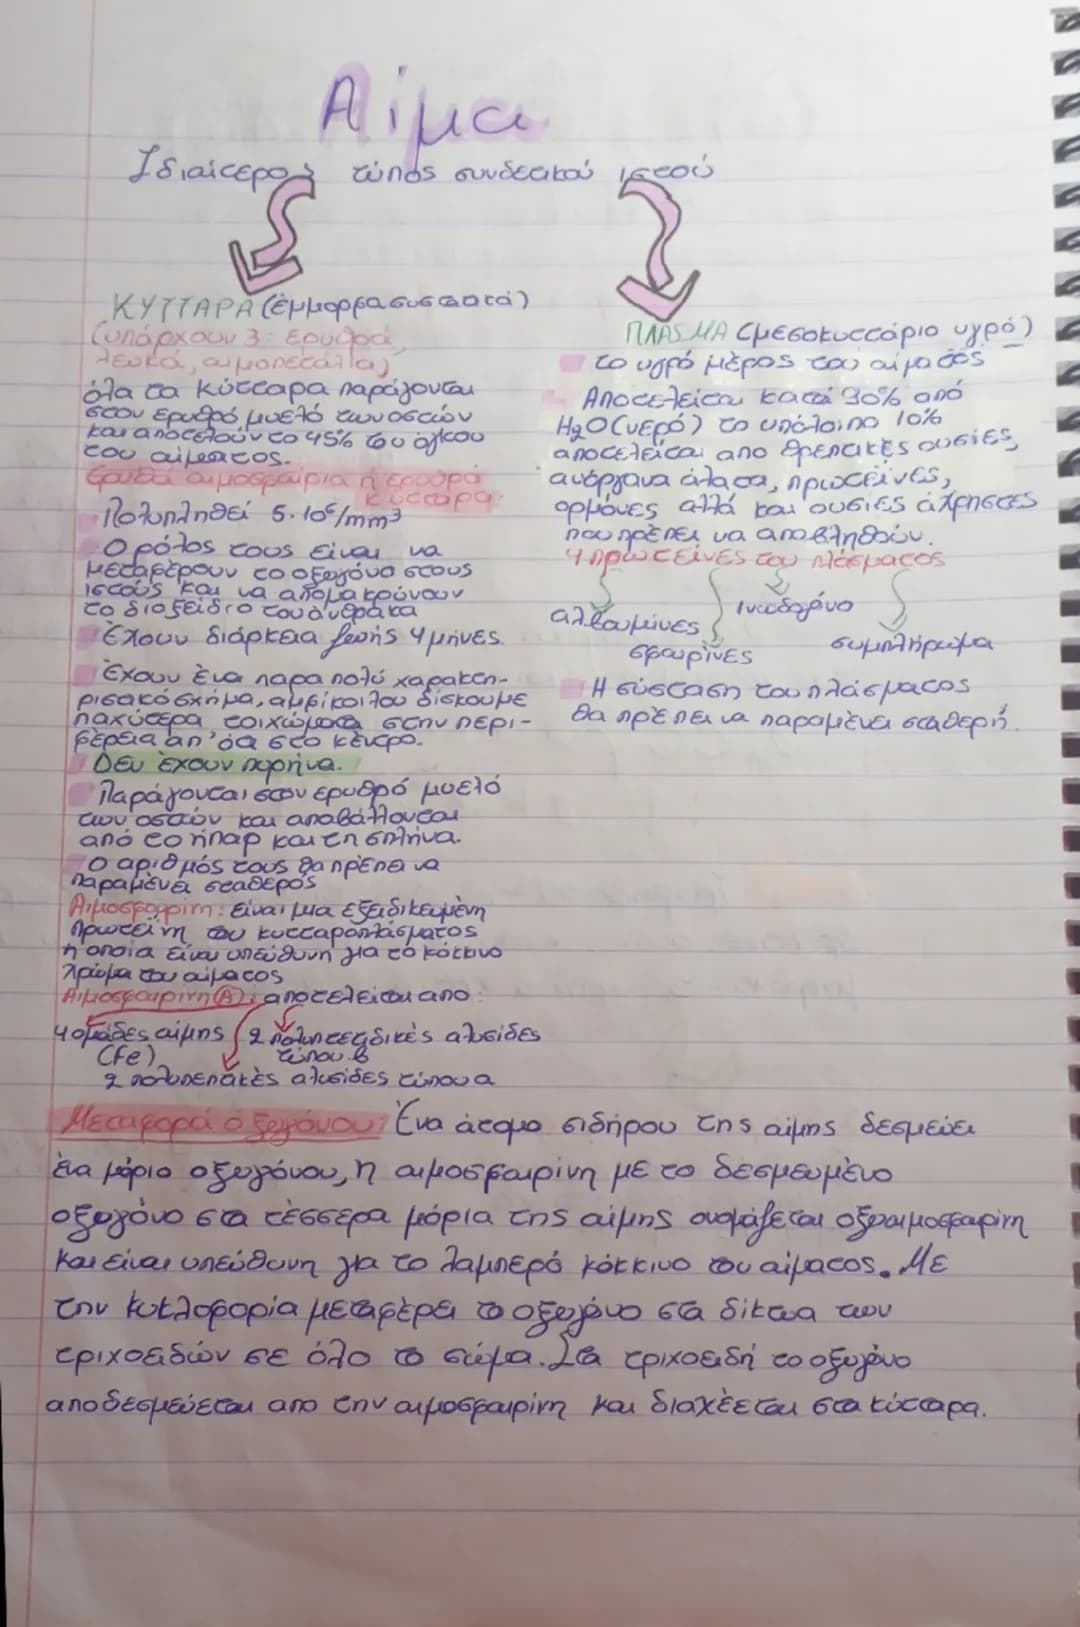 Αίμα
Ιδιαίτερος τύπος συνδετικού ιστού
ΚΥΤΤΑΡΑ (έμμορφα συστατικά)
(υπάρχουν 3: Ερυθρά,
λευκά, αιμοπετάλια)
όλα τα κύτταρα παράγονται
στον ερυθρό μυελό των οστών
και αποτελούν το 45% του όγκου
του αίματος.
Ερυθρά αιμοσφαίρια ή ερυθρά
κύτταρα:
Πολυπληθεί 5·10⁶/mm³
Ο ρόλος τους είναι να
μεταφέρουν το οξυγόνο στους
ιστούς και να απομακρύνουν
το διοξείδιο του άνθρακα
Έχουν διάρκεια ζωής 4 μήνες.
Έχουν ένα παρα πολύ χαρακτη-
ριστικό σχήμα, αμφίκοιλου δίσκου με
παχύτερα τοιχώματα στην περι-
φέρεια απ' ότι στο κέντρο.
Δεν έχουν πυρήνα.
Παράγονται στον ερυθρό μυελό
των οστών και αποβάλλονται
από το ήπαρ και τη σπλήνα.
Ο αριθμός τους θα πρέπει να
παραμένει σταθερός
Αιμοσφαιρίνη: είναι μια εξειδικευμένη
πρωτεΐνη του κυτταροπλάσματος
η οποία είναι υπεύθυνη για το κόκκινο
χρώμα του αίματος
Αιμοσφαιρίνη (Α): αποτελείται απο:
4 ομάδες αίμης (Fe)
2 πολυπεπτιδικές αλυσίδες τύπου β
2 πολυπεπτικές αλυσίδες τύπου α
ΠΛΑSΜΑ (μεσοκυττάριο υγρό)
το υγρό μέρος του αίματος
Αποτελείται κατά 90% από
H₂O (νερό) το υπόλοιπο 10%
αποτελείται απο θρεπτικές ουσίες,
ανόργανα άλατα, πρωτεΐνες,
ορμόνες αλλά και ουσίες άχρηστες
που πρέπει να αποβληθούν.
4 πρωτεΐνες του πλάσματος
αλβουμίνες
σφαιρίνες
ινωδογόνο
συμπλήρωμα
Η σύσταση του πλάσματος
θα πρέπει να παραμένει σταθερή.
Μεταφορά οξυγόνου: Ένα άτομο σιδήρου της αίμης δεσμεύει
ένα μόριο οξυγόνου, η αιμοσφαιρίνη με το δεσμευμένο
οξυγόνο στα τέσσερα μόρια της αίμης ονομάζεται οξυαιμοσφαιρίνη
και είναι υπεύθυνη για το λαμπερό κόκκινο του αίματος. Με
την κυκλοφορία μεταφέρει το οξυγόνο στα δίκτυα των
τριχοειδών σε όλο το σώμα. Στα τριχοειδή το οξυγόνο
αποδεσμεύεται απο την αιμοσφαιρίνη και διαχέεται στα κύτταρα.